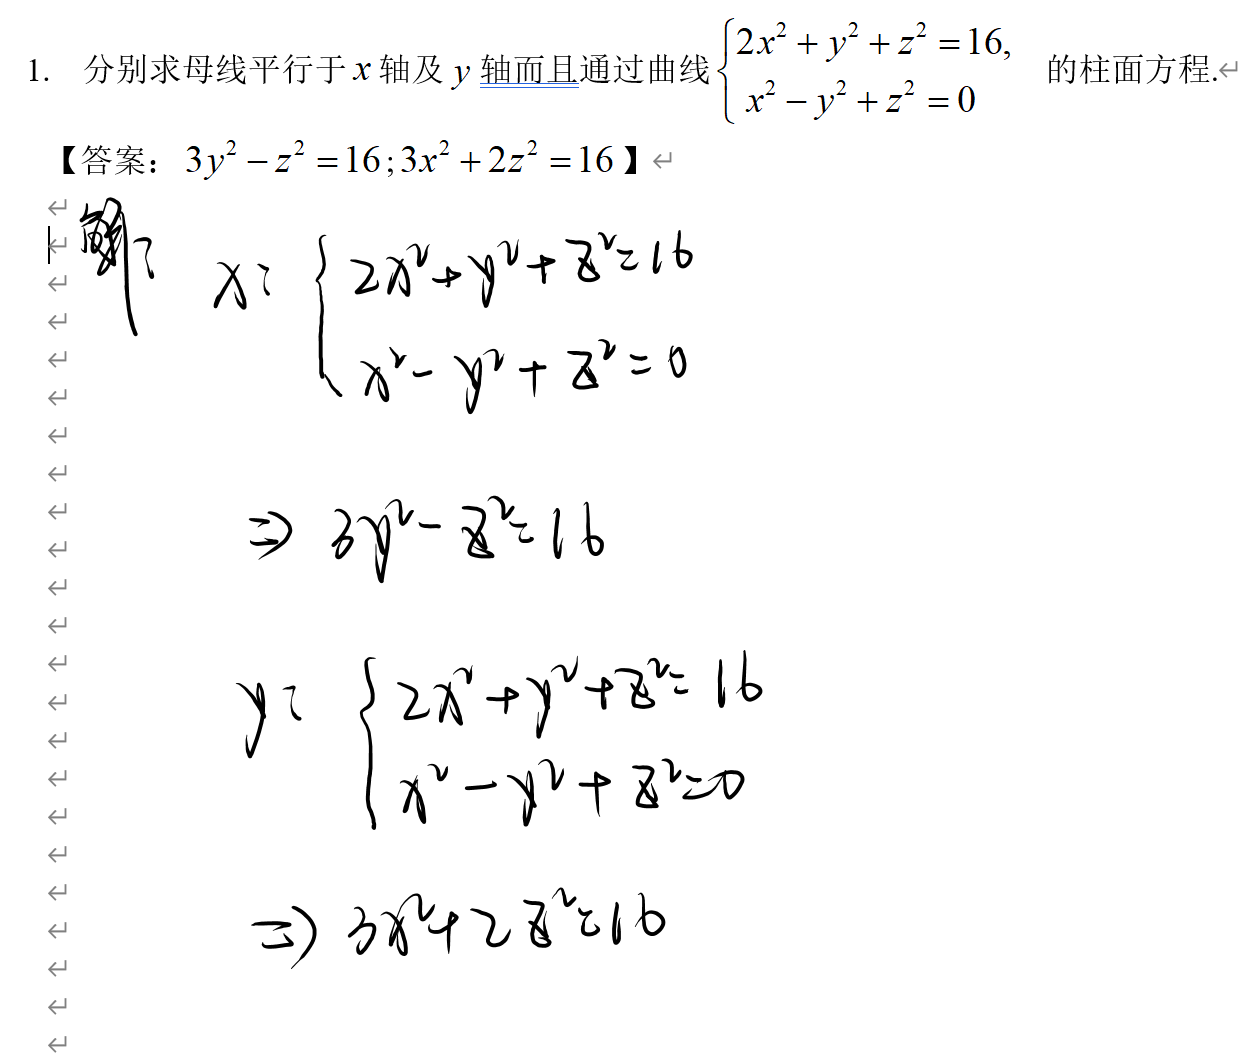 1. 分别求母线平行于 x 轴及 y 轴而且通过曲线 { 2x² + y² + z² = 16, x² − y² + z² = 0 的柱面方程.
【答案：3y² − z² = 16; 3x² + 2z² = 16】
解：
x: { 2x² + y² + z² = 16
x² − y² + z² = 0
⇒ 3y² − z² = 16
y: { 2x² + y² + z² = 16
x² − y² + z² = 0
⇒ 3x² + 2z² = 16